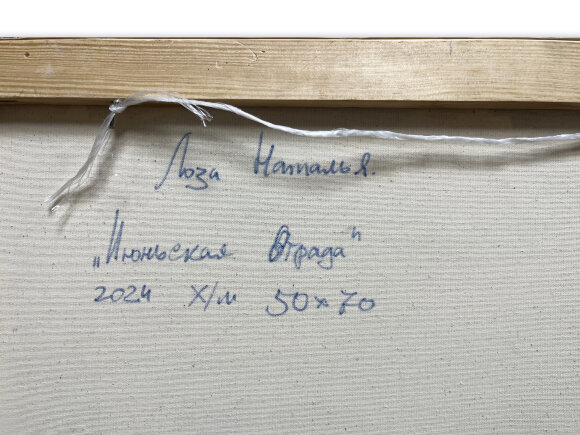 Лоза Наталья.
„Июньская Отрада"
2024 х/м 50×70